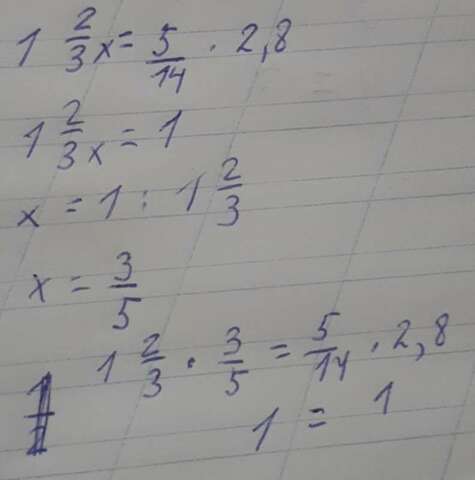 1 2/3 x = 5/14 · 2,8
1 2/3 x = 1
x = 1 : 1 2/3
x = 3/5
1 2/3 · 3/5 = 5/14 · 2,8
1 = 1